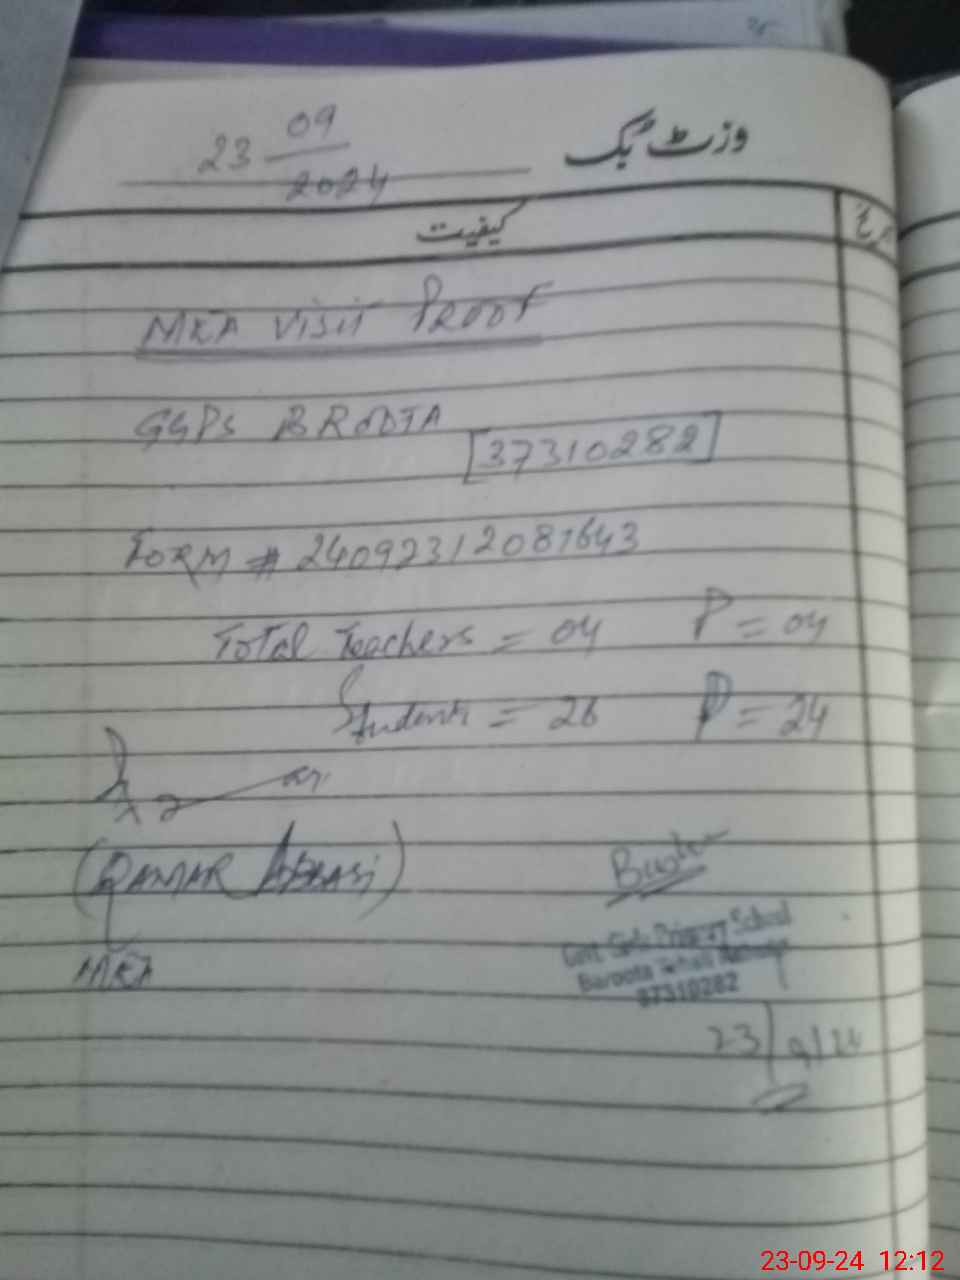 وزٹ بک
23 09
2024
کیفیت
MEA VISIT PROOF
GGPS BROOTA
37310282
FORM # 24092312081643
Total Teachers = 04 P = 04
Students = 26 P = 24
(QAMAR ABBASI)
MEA
Govt Girls Primary School
Baroota Tehsil
37310282
23/9/24
23-09-24 12:12